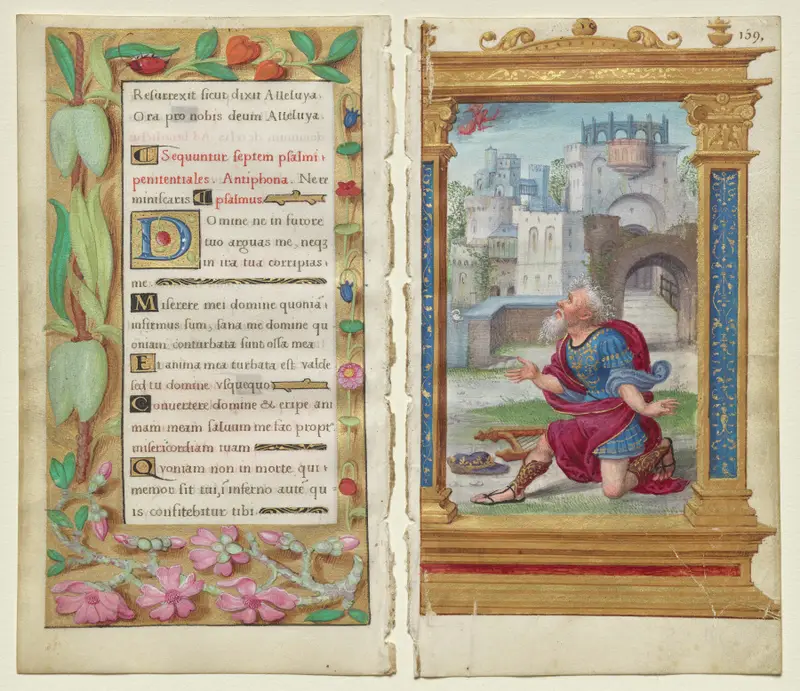 Resurrexit sicut dixit Alleluya.
Ora pro nobis deum Alleluya.
Sequuntur septem psalmi
penitentiales. Antiphona. Ne re
miniscaris. psalmus.
Domine ne in furore
tuo arguas me, neqz
in ira tua corripias
me.
Miserere mei domine quoniā
infirmus sum, sana me domine qu
oniam conturbata sunt ossa mea
Et anima mea turbata est valde
sed tu domine vsquequo
Conuertere domine & eripe ani
mam meam saluum me fac propt̾
misericordiam tuam
Qvoniam non in morte qui
memor sit tui, ī inferno autē qu
is confitebitur tibi.
159.